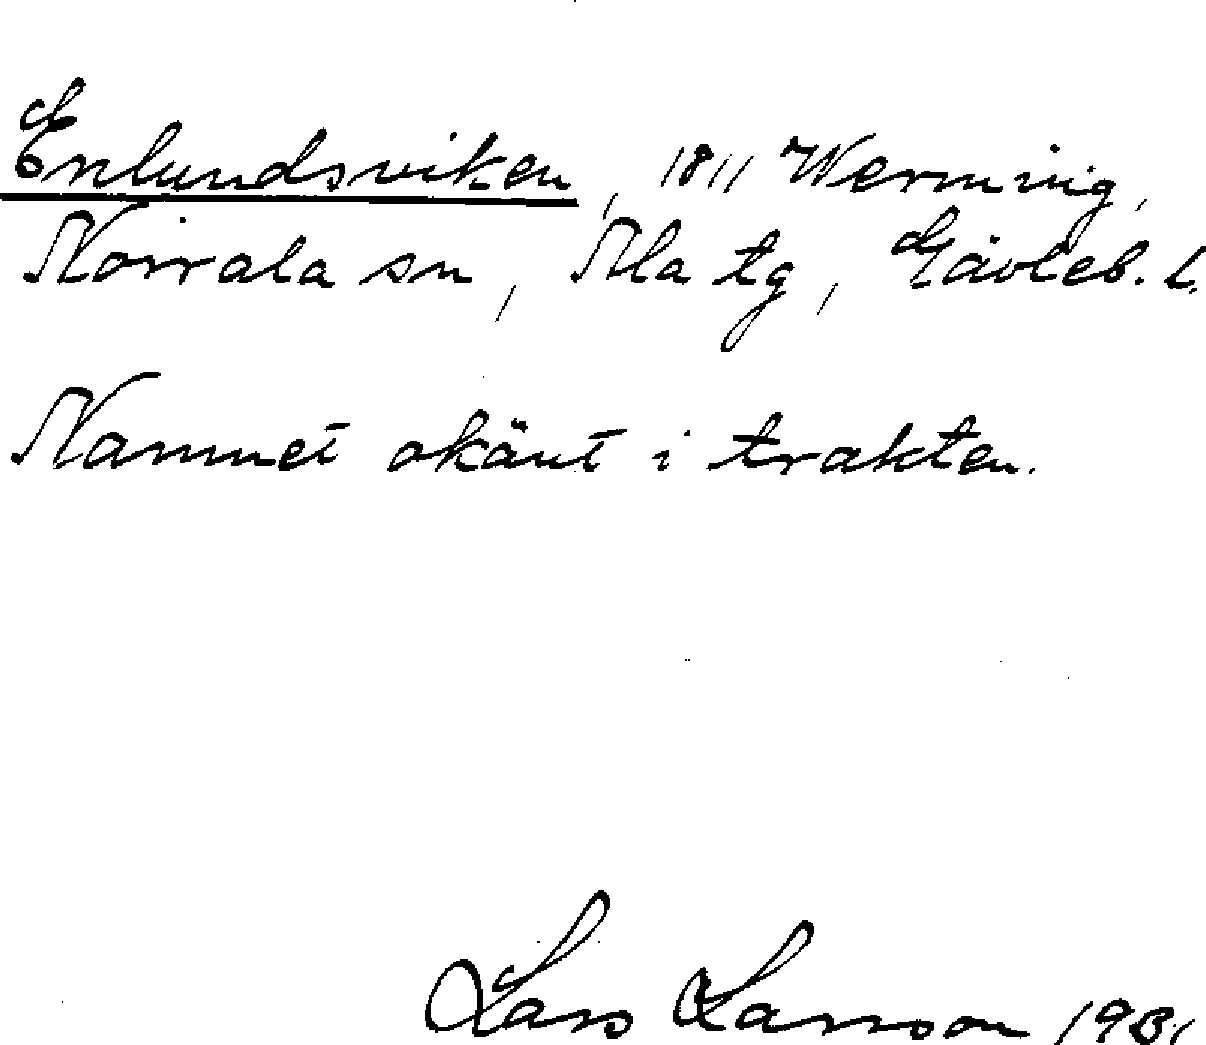 Enlundsviken, 1811 Werming,
Norrala sn, Ala tg, Gävleb. l.
Namnet okänt i trakten.
Lars Larsson 1931